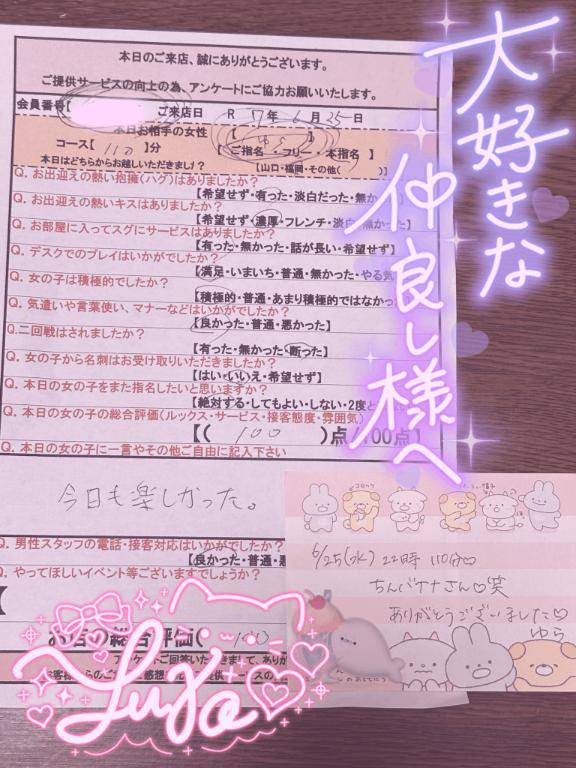 大好きな
仲良し様へ
本日のご来店、誠にありがとうございます。
ご提供サービスの向上の為、アンケートにご協力お願いいたします。
会員番号【 ご来店日 R 17年 6月 25日
本日お相手の女性 【 ゆら 】
コース【 110 】分 【 ご指名・フリー・本指名 】
本日はどちらからお越しいただきました!? 【山口・福岡・その他( )】
Q. お出迎えの熱い抱擁(ハグ)はありましたか?
【希望せず・有った・淡白だった・無か
Q. お出迎えの熱いキスはありましたか?
【希望せず・濃厚・フレンチ・淡白・無かった】
Q. お部屋に入ってスグにサービスはありましたか?
【有った・無かった・話が長い・希望せず】
Q. デスクでのプレイはいかがでしたか?
【満足・いまいち・普通・無かった・やる気
Q. 女の子は積極的でしたか?
【積極的・普通・あまり積極的ではなかっ
Q. 気遣いや言葉使い、マナーなどはいかがでしたか?
【良かった・普通・悪かった】
Q.二回戦はされましたか?
【有った・無かった・断った】
Q. 女の子から名刺はお受け取りいただきましたか?
【はい・いいえ・希望せず】
Q. 本日の女の子をまた指名したいと思いますか?
【絶対する・してもよい・しない・2度と
Q. 本日の女の子の総合評価(ルックス・サービス・接客態度・雰囲気)
【( 100 )点/100点】
Q. 本日の女の子に一言やその他ご自由に記入下さい
今日も楽しかった。
Q. 男性スタッフの電話・接客対応はいかがでしたか?
【良かった・普通・悪
Q. やってほしいイベント等ございますでしょうか?
お店の総合評価(
アンケートご回答いただきまして、あり
コロッケ
6/25(水) 22時 110分♡
ちんバケナさん♡笑
ありがとうございました♡
ゆら
Yura